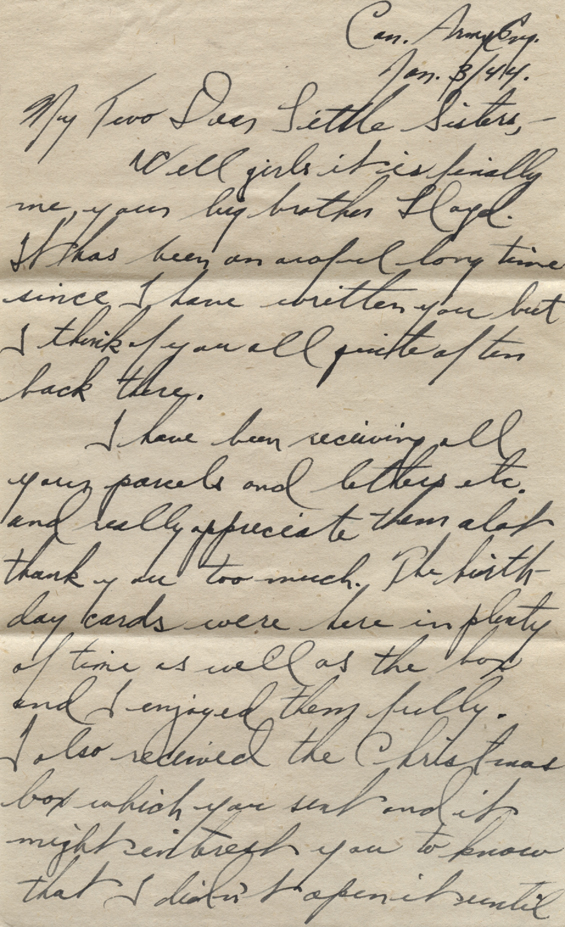 Can. Army Eng.
Jan. 3/44.
My Two Dear Little Sisters,—
Well girls it is finally
me, your big brother Lloyd.
It has been an awful long time
since I have written you but
I think of you all quite often
back there.
I have been receiving all
your parcels and letters etc.
and really appreciate them alot
thank you too much. The birth-
day cards were here in plenty
of time as well as the box
and I enjoyed them fully.
I also received the Christmas
box which you sent and it
might interest you to know
that I didn't open it until